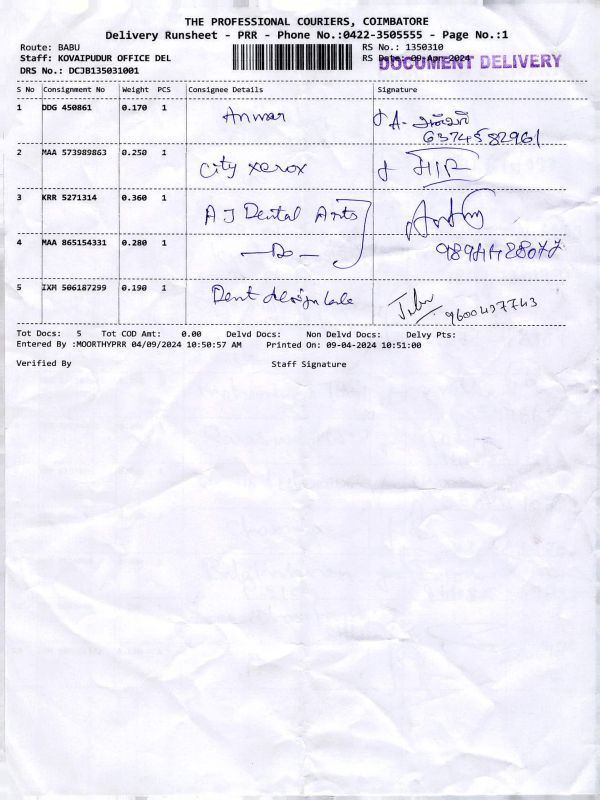 THE PROFESSIONAL COURIERS, COIMBATORE
Delivery Runsheet - PRR - Phone No.:0422-3505555 - Page No.:1
Route: BABU RS No.: 1350310
Staff: KOVAIPUDUR OFFICE DEL RS Date: 09-Apr-2024
DOCUMENT DELIVERY
DRS No.: DCJB135031001
S No Consignment No Weight PCS Consignee Details Signature
1 DDG 450861 0.170 1 Anwar
2 MAA 573989863 0.250 1 City xerox
3 KRR 5271314 0.360 1 A J Dental Arts
4 MAA 865154331 0.280 1 —Do—
5 IXM 506187299 0.190 1 Dent design 9600437743
Tot Docs: 5 Tot COD Amt: 0.00 Delvd Docs: Non Delvd Docs: Delvy Pts:
Entered By :MOORTHYPRR 04/09/2024 10:50:57 AM Printed On: 09-04-2024 10:51:00
Verified By Staff Signature